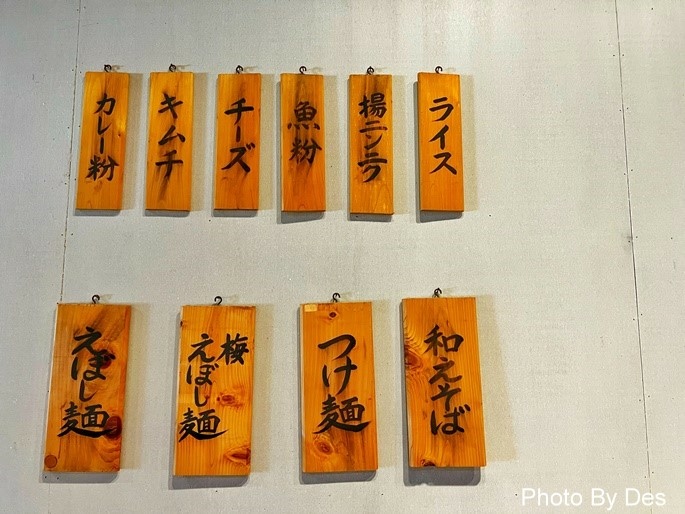 カレー粉
キムチ
チーズ
魚粉
揚ニンニク
ライス
えぼし麺
梅
えぼし麺
つけ麺
和えそば
Photo By Des